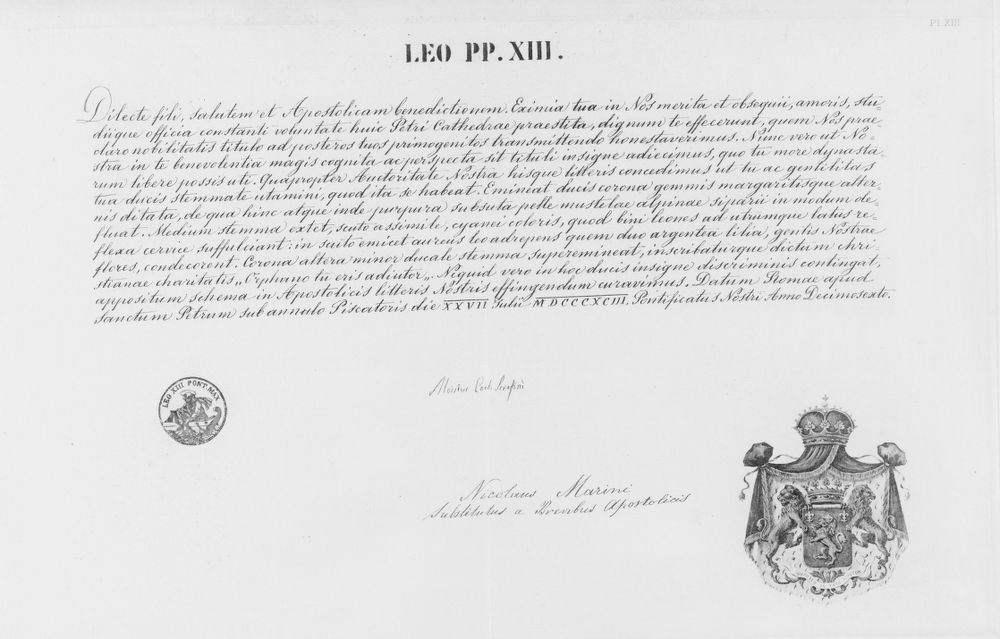 Pl. XIII
LEO PP. XIII.
Dilecte fili, salutem et Apostolicam benedictionem. Eximia tua in Nos merita et obsequii, amoris, stu-
diique officia constanti voluntate huic Petri Cathedrae praestita, dignum te effecerunt, quem Nos prae
claro nobilitatis titulo ad posteros tuos primogenitos transmittendo honestaverimus. Nunc vero ut No-
stra in te benevolentia magis cognita ac perspecta sit tituli insigne adiecimus, quo tu more dynasta-
rum libere possis uti. Quapropter Auctoritate Nostra hisque litteris concedimus ut tu ac gentilitas
tua ducis stemmate utamini, quod ita se habeat. Emineat ducis corona gemmis margaritisque alter-
nis ditata, de qua hinc atque inde purpura subsuta pelle mustelae alpinae siparii in modum de-
fluat. Medium stemma extet, scuto assimile, cyanei coloris, quod bini leones ad utrumque latus re-
flexa cervice suffulciant: in scuto emicet aureus leo adrepens quem duo argentea lilia, gentis Nostrae
flores, condecorent. Corona altera minor ducale stemma superemineat, inscribaturque dictum chri-
stianae charitatis „Orphano tu eris adiutor„. Nequid vero in hoc ducis insigne discriminis contingat,
appositum schema in Apostolicis litteris Nostris effingendum curavimus. Datum Romae apud
Sanctum Petrum sub annulo Piscatoris die XXVII Iulii MDCCCXCIII. Pontificatus Nostri Anno Decimosexto.
LEO XIII PONT. MAX
Aloisius Card. Serafini
Nicolaus Marini
Substitutus a Brevibus Apostolicis